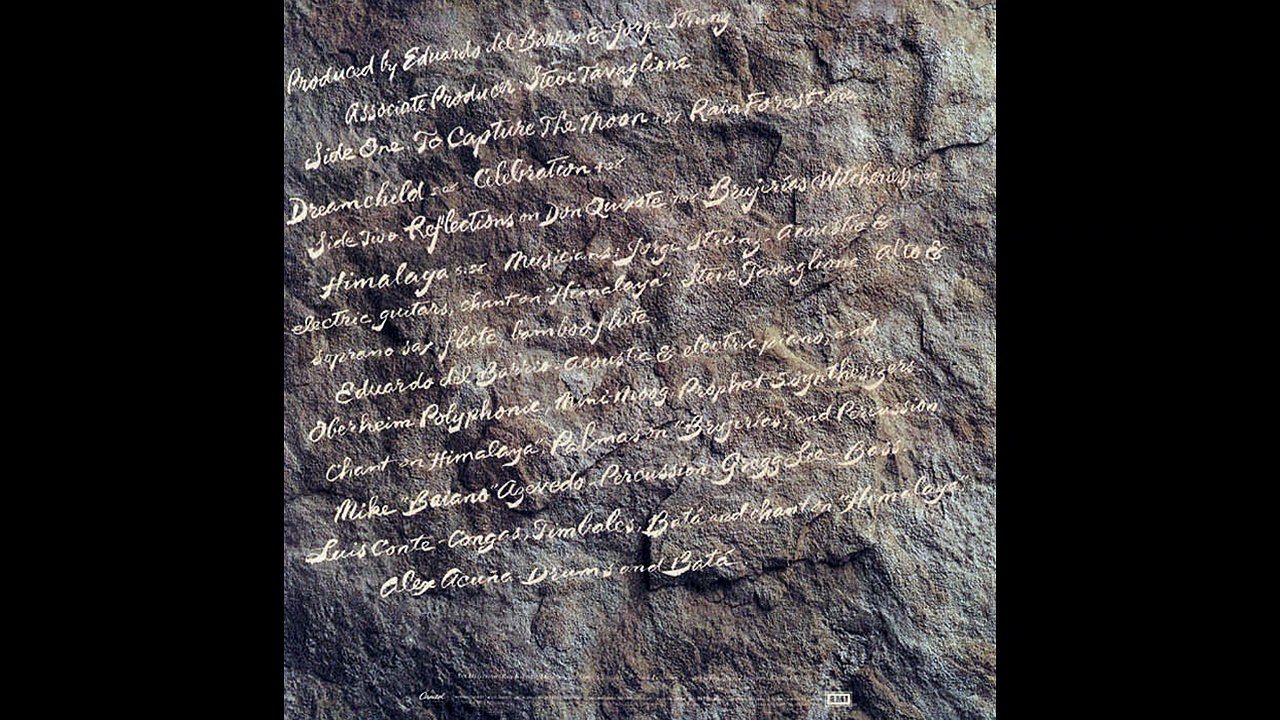 Produced by Eduardo del Barrio & Jorge Strunz
Associate Producer - Steve Tavaglione
Side One To Capture The Moon Rain Forest
Dreamchild Celebration
Side Two Reflections on Don Quixote Brujerías (Witcheries)
Himalaya Musicians: Jorge Strunz - Acoustic &
electric guitars, chant on "Himalaya" Steve Tavaglione Alto &
soprano sax, flute bamboo flute
Eduardo del Barrio - Acoustic & electric piano, and
Oberheim Polyphonic, Mini Moog Prophet 5 synthesizers
Chant on "Himalaya", Palmas on "Brujerías, and Percussion
Mike "Baiano" Azevedo - Percussion Gregg Lee - Bass
Luis Conte - Congas, Timbales, Batá and chant on "Himalaya"
Alex Acuña Drums and Batá
Capitol
EMI